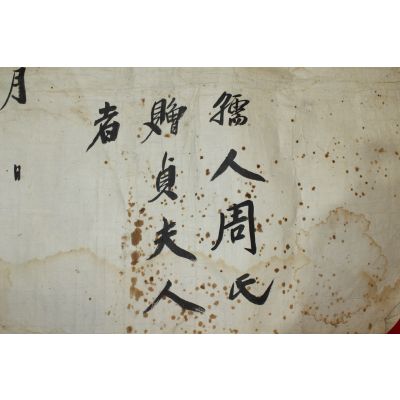 孺人周氏
贈貞夫人
者
月 日